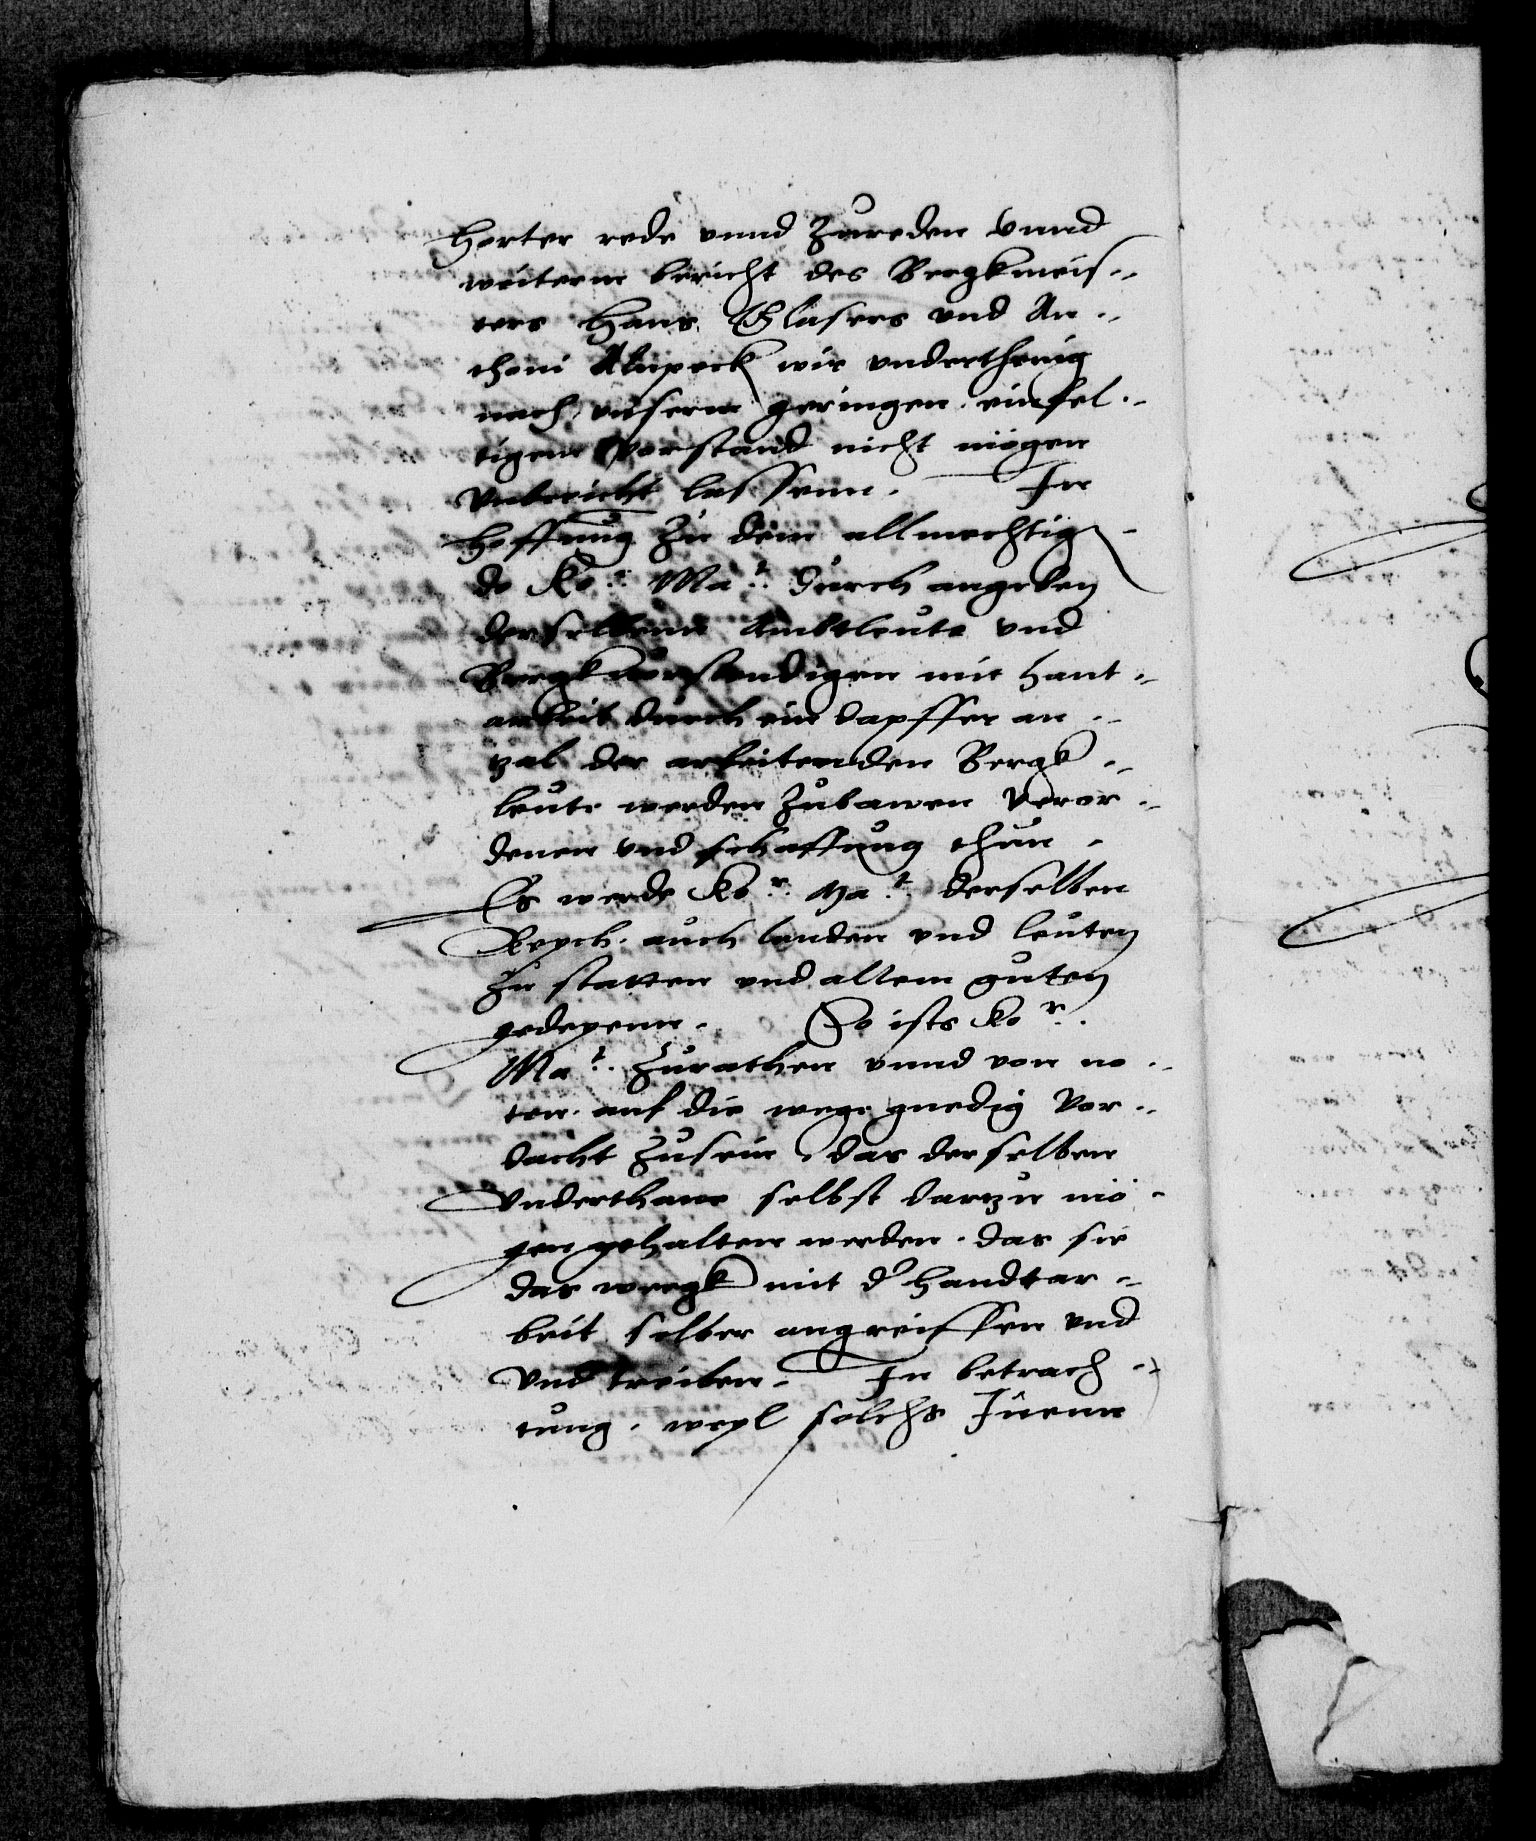 horter rede unnd Zureden vnnd
weiterm bericht des Bergkmeis-
ters Hans Glasers vnd An-
thoni Alnpeck wir vnderthenig
nach vnserm geringen einfel-
tigem Vorstand nicht mögen
Vnbericht lassenn. In
Hoffnung Zu dem allmechtig
do Ko.r Ma.t durch angeben
derselbenn Ambtleute vnd
Bergkvorstendigen mit hant-
arbeit durch ein dapffer an-
zal der arbeitenden Bergk-
leute werden Zubawen Veror-
denen vnd schaffung thun-
Es werde Ko.r Ma.t derselben
Reych. auch landen vnd leuten
Zu statten vnd allem guten
gedeyenn. So ists Ko.r
Ma.t Zurathen vnnd von no-
ten. auf die wege gnedig Vor-
dacht Zusein das derselben
Vnderthane selbst dartzu mö-
gen gehalten werden. das sie
das wergk mit d' handtar-
beit selber angreiffen vnd
Vnd treiben. In betrach-
tung. weyl solchs Inenn